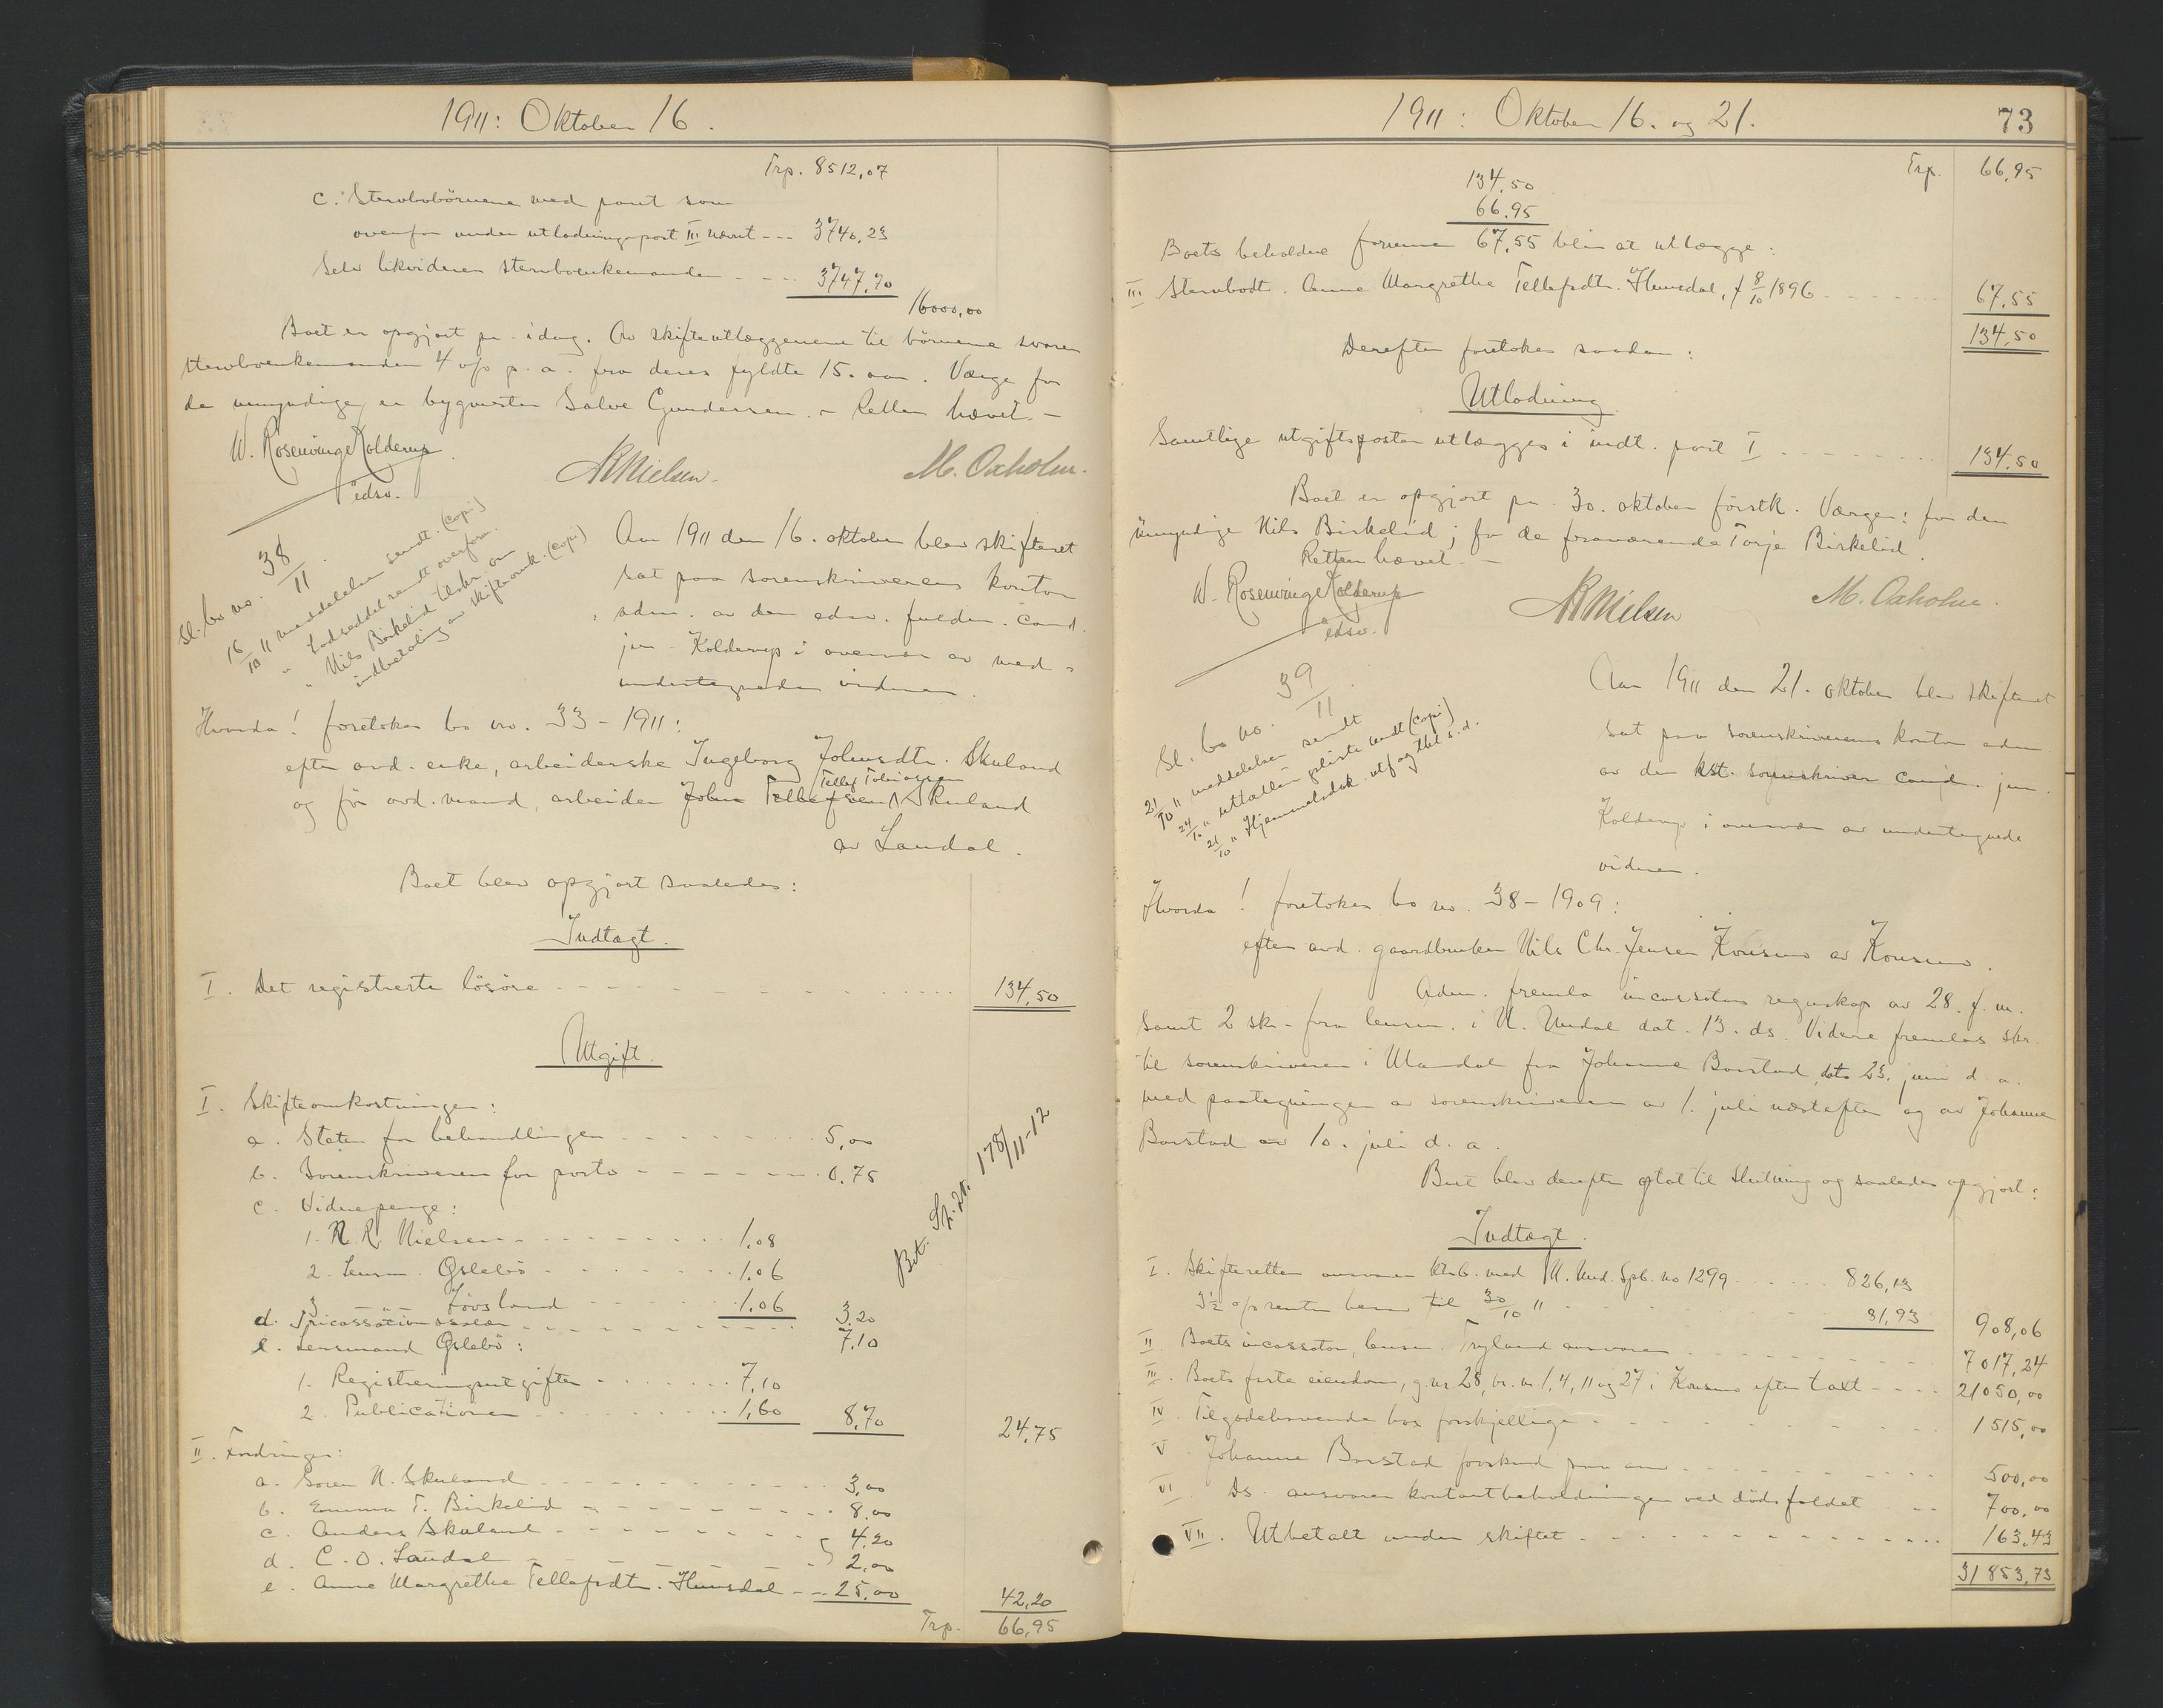 1911: Oktober 16.
Trp. 8512,07
c. Stervbobörnene med part som
ovenfor under utlodningspost III nævnt --- 3740,23
Selv likviderer stervboenkemanden - - - - 3747,70
16000,00
Boet er opgjort pr. idag. Av skifteutlæggenene til börnene svarer
stervboenkemanden 4 o/o p. a. fra deres fyldte 15. aar. Værge for
de umyndige er bygmester Salve Gundersen. - Retten hævet. -
W. Rosenvinge Kolderup
edsv.
N R Nielsen.
M. Oxholm.
Sl. bo no. 38/11.
16/10 11 meddelelser sendt. (Copi)
" Lodseddel sendt overform.
" Nils Birkelid tilskr. om
indbetaling av skifteomk. (Copi)
Aar 1911 den 16. oktober blev skifteret
sat paa sorenskriverens kontor
adm. av den edsv. fuldm. cand.
jur. Kolderup i overvær av med-
undertegnede vidner.
Hvorda! foretokes bo no. 33 - 1911:
efter avd. enke, arbeiderske Ingeborg Johnsdtr. Skuland
Tellef Tobiassen
og för avd. mand, arbeider John Tellefsen Skuland
av Laudal.
Boet blev opgjort saaledes:
Indtægt.
I. Det registrerte lösöre - - - - 134,50
Utgift.
I. Skifteomkostninger:
a. Staten for behandlingen - - - - 5,00
b. Sorenskriveren for porto - - - - 0,75
c. Vidnepenge:
1. N. R. Nielsen - - - - 1,08
2. Lensm. Öslebö - - - - 1,06
3. " Jövsland - - - - 1,06 3,20
d. Incassationssalær - - - - 7,10
e. Lensmand Öslebö:
1. Registreringsutgifter - - - - 7,10
2. Publicationer - - - - 1,60 8,70
24,75
Bet. Sp. 21. 178/11-12
II. Fordringer:
a. Soren N. Skuland - - - - 3,00
b. Emma T. Birkelid - - - - 8,00
c. Anders Skuland - - - - 4,20
d. C. O. Laudal - - - - 2,00
e. Anne Margrethe Tellefsdtr. Hunsdal - - - 25,00
42,20
Trp. 66,95
1911: Oktober 16. og 21.
73
Trp. 66,95
134,50
66,95
Boets beholdne formue 67,55 blir at utlægge:
III Stervbodt. Anne Margrethe Tellefsdtr. Hunsdal, f 8/10 1896 - - - - 67,55
134,50
Derefter foretokes saadan:
Utlodning
Samtlige utgiftsposter utlægges i indt. post I - - - - 134,50
Boet er opgjort pr. 30. oktober förstk. Værger: for den
umyndige Nils Birkelid; for de fraværende Torje Birkelid.
Retten hævet. -
W. Rosenvinge Kolderup
edsv.
N R Nielsen
M. Oxholm.
Sl. bo no. 39/11.
21/10 11 meddelelser sendt
24/10 " uttællingsliste sendt (Copi)
21/10 " Hjemmelsdok. utf. og thl. s. d.
Aar 1911 den 21. oktober blev skifteret
sat paa sorenskriverens kontor adm
av den kst. sorenskriver cand. jur.
Kolderup i overvær av undertegnede
vidner.
Hvorda! foretokes bo no. 38 - 1909:
efter avd. gaardbruker Nils Chr. Jensen Konsmo av Konsmo.
Adm. fremla incassators regnskap av 28. f. m.
samt 2 skr. fra lensm. i N. Undal dat. 13. ds. Videre fremlas skr.
til sorenskriveren i Mandal fra Johanne Barstad, dat. 23. juni d. a.
med paategninger av sorenskriveren av 1. juli næstefter og av Johanne
Barstad av 10. juli d. a.
Boet blev derefter optat til slutning og saaledes opgjort:
Indtægt.
I. Skifteretten ansvarer ktrb. med N. Und. Spb. no 1299 - - - - 826,13
3½ o/o renter herav til 30/10 11 - - - - 81,93
908,06
II. Boets incassator, lensm. Tryland ansvarer - - - - 7017,24
III. Boets faste eiendom, g.nr 28, br.nr 1, 4, 11 og 27 i Konsmo efter taxt - - - - 21050,00
IV. Tilgodehavende hos forskjellige - - - - 1515,00
V Johanne Barstad forskud paa arv - - - - 500,00
VI Ds. ansvarer kontantbeholdningen ved dödsfaldet - - 700,00
VII. Utbetalt under skiftet - - - - 163,43
31853,73